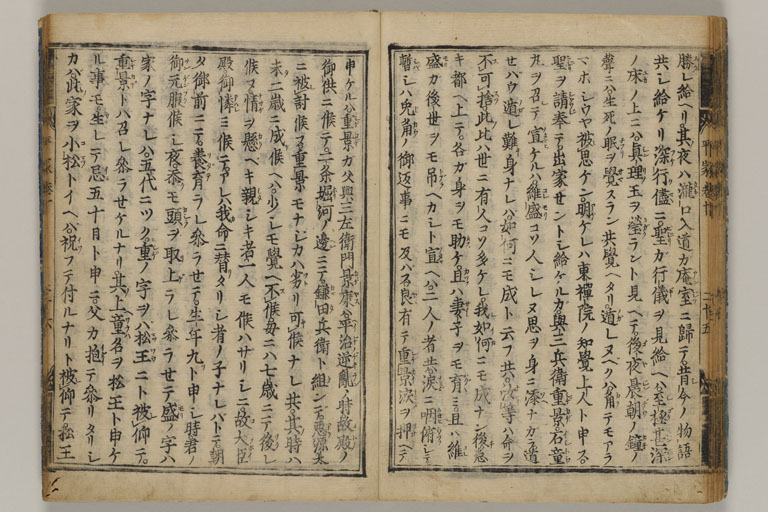 勝レ給ヘリ其夜ハ瀧口入道カ庵室ニ歸テ昔今ノ物語
共シ給ケリ深行儘ニ聖カ行儀ヲ見給ヘハ至極甚深
ノ床ノ上ニハ真理玉ヲ瑩ラント見ヘテ後夜晨朝ノ鐘ノ
聲ニハ生死ノ眠ヲ覺スラン共覺ヘタリ遁レヌヘクハ角テモアラ
マホシウヤ被思ケン明ケレハ東禪院ノ知覺上人ト申ス
聖ヲ請奉テ出家セントシ給ケルカ與三兵衛重景石童
丸ヲ召テ宣ケルハ維盛コソ人シレヌ思ヲ身ニ添ナカラ道
セハウ遁レ難身ナレハ如何ニモ成ト云フ共汝等ハ命ヲ
不可捨此比ハ世ニ有人コソ多ケレ我如何ニモ成ナン後急
キ都ヘ上テ各カ身ヲモ助ケ且ハ妻子ヲモ育ミ且ハ維
盛カ後世ヲモ吊ヘカシト宣ヘハ二人ノ者共涙ニ咽俯シテ
暫シハ兎角ノ御返事ニモ及ハス良有テ重景涙ヲ押ヘテ
申ケルハ重景カ父與三左衛門景康ハ平治逆亂ノ時故殿ノ
御供ニ候テ二条堀河ノ邊ニテ鎌田兵衛ト組ンテ惡源太
ニ被討候ヌ重景モナシカハ劣リ可候ナレ共其時ハ
未二歳ニ成候ヘハ少シモ覺ヘ不候母ニハ七歳ニテ後レ
候ヌ情ヲ懸ヘキ親シキ者一人モ候ハサリシニ故大臣
殿御憐ミ候テアレハ我命ニ替タリシ者ノ子ナレハトテ朝
夕御前ニテ養育ラレ參ラセテ生年九ト申シ時君ノ
御元服候シ夜忝モ頭ヲ取上ラレ參ラセテ盛ノ字ハ
家ノ字ナレハ五代ニツク重ノ字ヲハ松王ニト被仰テ
重景トハ召レ參ラセケルナリ其上童名ヲ松王ト申ケ
ル事モ生レテ忌五十日ト申ニ父カ抱テ參リタリシ
カハ此家ヲ小松トイヘハ祝フテ付ルナリト被仰テ松王